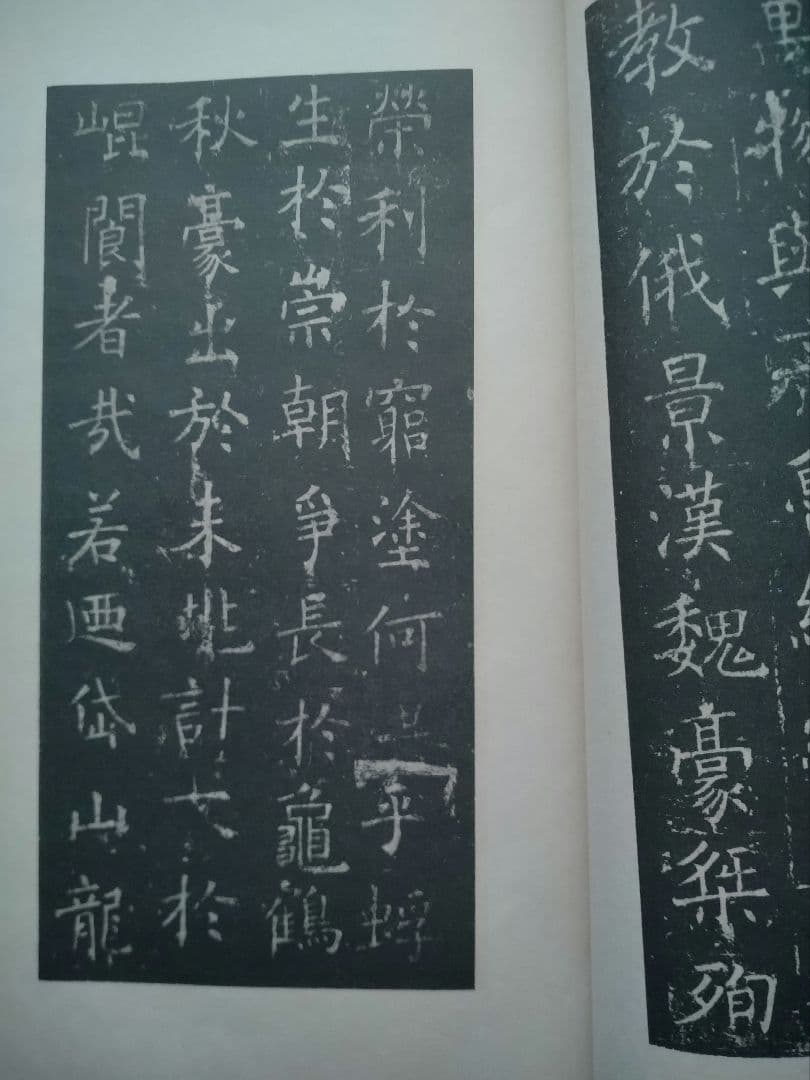 物與
教於俄景漢魏豪桀殉
榮利於窮塗何乎蜉
生於崇朝爭長於龜鶴
秋豪出於未兆計大於
崐閬者哉若迺岱山龍